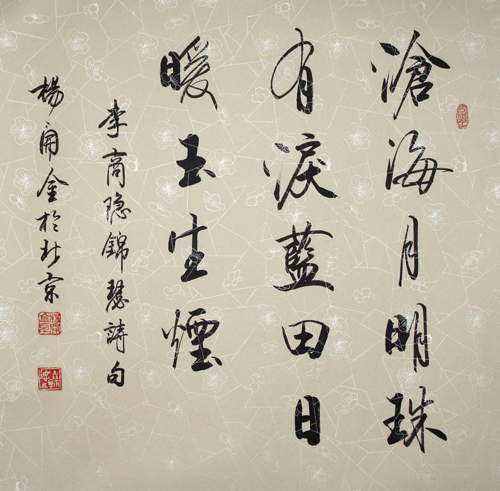 滄海月明珠
有淚藍田日
暖玉生煙
李商隐錦瑟詩句
楊開金於北京